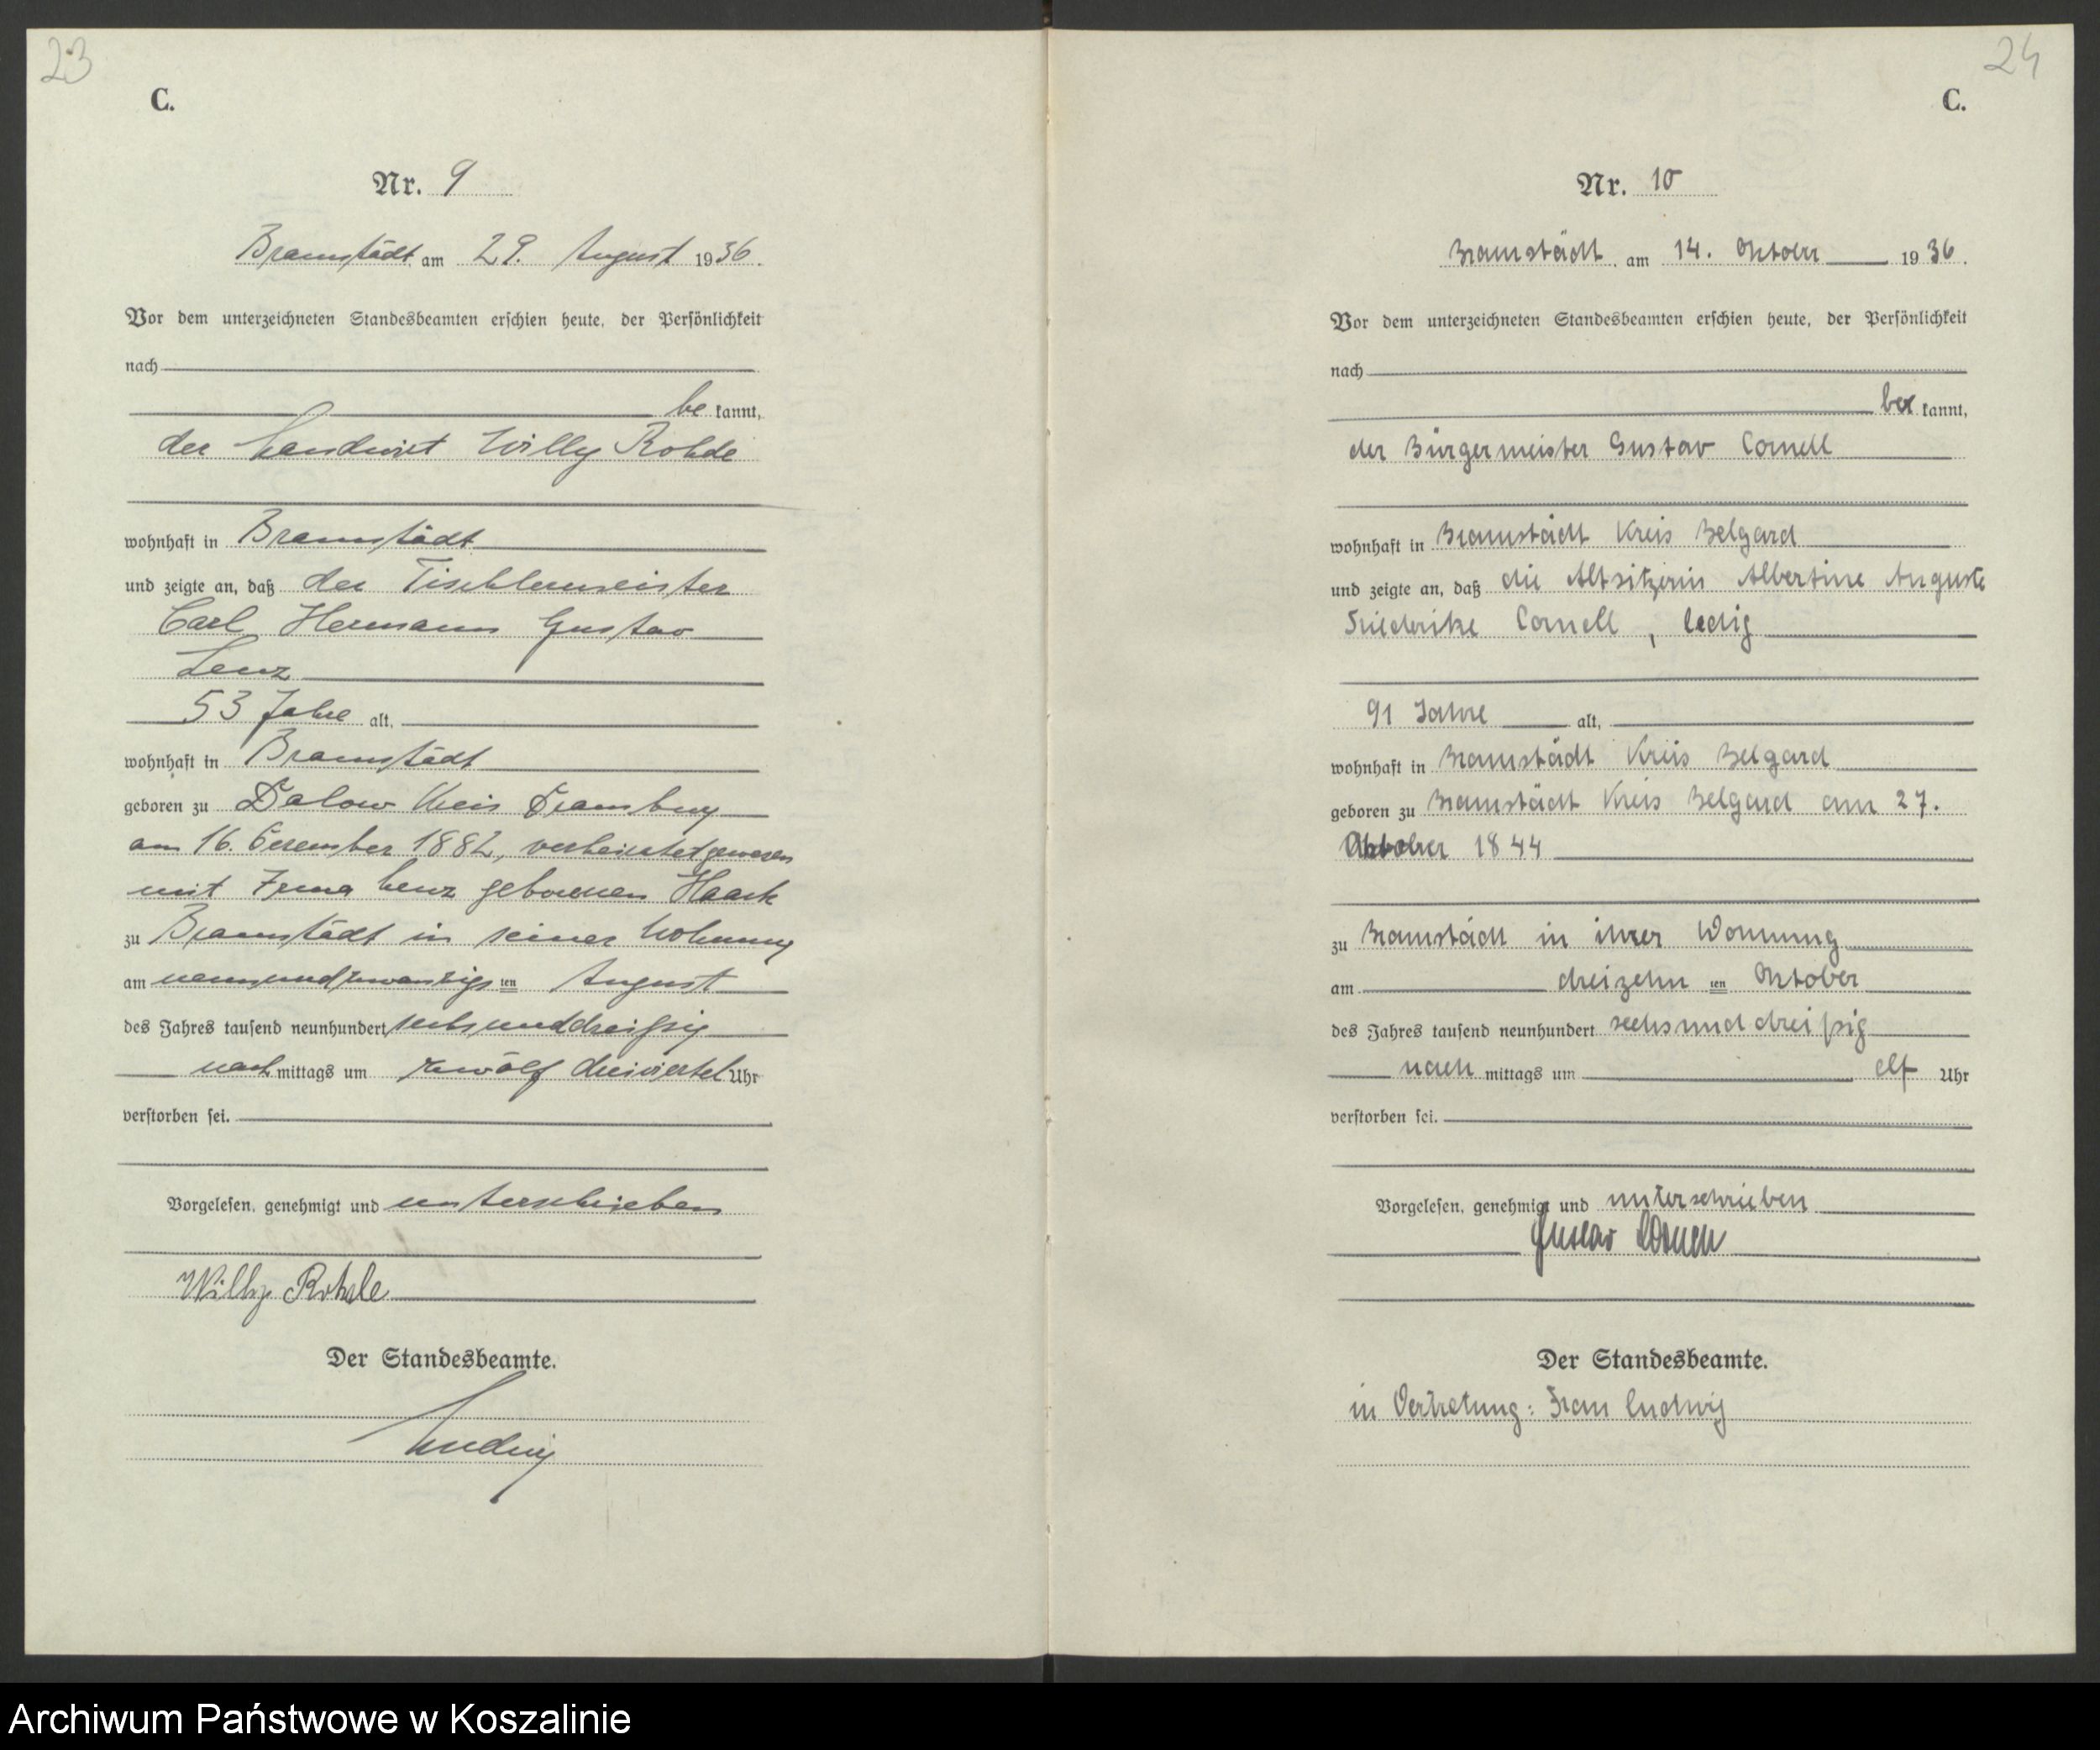 23
C.
Nr. 9
Bramstädt am 29. August 1936.
Vor dem unterzeichneten Standesbeamten erschien heute, der Persönlichkeit
nach
be kannt,
der Landwirt Willy Rohde
wohnhaft in Bramstädt
und zeigte an, daß der Tischlermeister
Carl Hermann Gustav
Lenz
53 Jahre alt,
wohnhaft in Bramstädt
geboren zu Dalow Kreis Dramburg
am 16. Dezember 1882, verheiratet gewesen
mit Irma Lenz geborenen Haack
zu Bramstädt in seiner Wohnung
am neunundzwanzigsten August
des Jahres tausend neunhundert sechsunddreißig
nach mittags um zwölf dreiviertel Uhr
verstorben sei.
Vorgelesen, genehmigt und unterschrieben
Willy Rohde
Der Standesbeamte.
Ludwig
24
C.
Nr. 10
Bramstädt, am 14. Oktober 1936.
Vor dem unterzeichneten Standesbeamten erschien heute, der Persönlichkeit
nach
be kannt,
der Bürgermeister Gustav Cornell
wohnhaft in Bramstädt Kreis Belgard
und zeigte an, daß die Altsitzerin Albertine Auguste
Friederike Cornell, ledig
91 Jahre alt,
wohnhaft in Bramstädt Kreis Belgard
geboren zu Bramstädt Kreis Belgard am 27.
Oktober 1844
zu Bramstädt in ihrer Wohnung
am dreizehnten Oktober
des Jahres tausend neunhundert sechsunddreißig
nach mittags um elf Uhr
verstorben sei.
Vorgelesen, genehmigt und unterschrieben
Gustav Cornell
Der Standesbeamte.
in Vertretung: Frau Ludwig
Archiwum Państwowe w Koszalinie